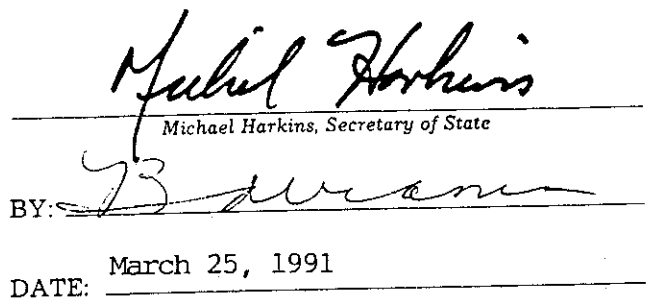 Michael Harkins
Michael Harkins, Secretary of State
BY:
DATE: March 25, 1991